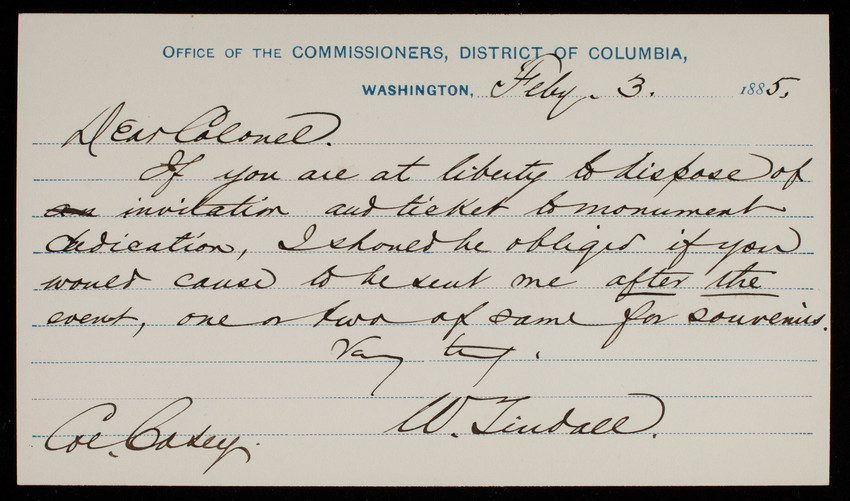 OFFICE OF THE COMMISSIONERS, DISTRICT OF COLUMBIA,
WASHINGTON, Feby. 3. 1885.
Dear Colonel.
If you are at liberty to dispose of
an invitation and ticket to monument
dedication, I should be obliged if you
would cause to be sent me after the
event, one or two of same for souvenirs.
Very truly.
W. Tindall.
Col. Casey.